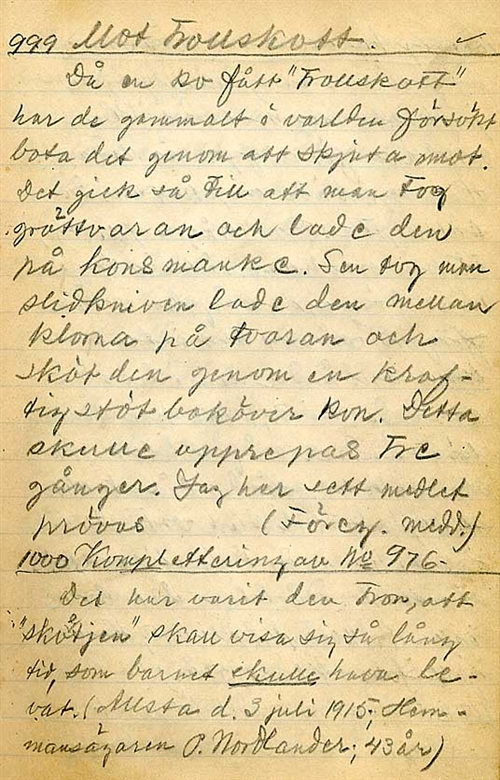 999 Mot Trollskott.
Då en ko fått "Trollskott"
har de gammalt i världen försökt
bota det genom att skjuta mot.
Det gick så till att man tog
gröttvaran och lade den
på kons manke. Sen tog man
slidkniven lade den mellan
klorna på tvaran och
sköt den genom en kraf-
tig stöt baköver kon. Detta
skulle upprepas tre
gånger. Jag har sett medlet
prövas (Föreg. medd.)
1000 Komplettering av No 976.
Det har varit den tron, att
"skåtjen" skall visa sig så lång
tid, som barnet skulle hava le-
vat. (Allsta d. 3 juli 1915; Hem-
mansägaren P. Nordlander; 43 år)